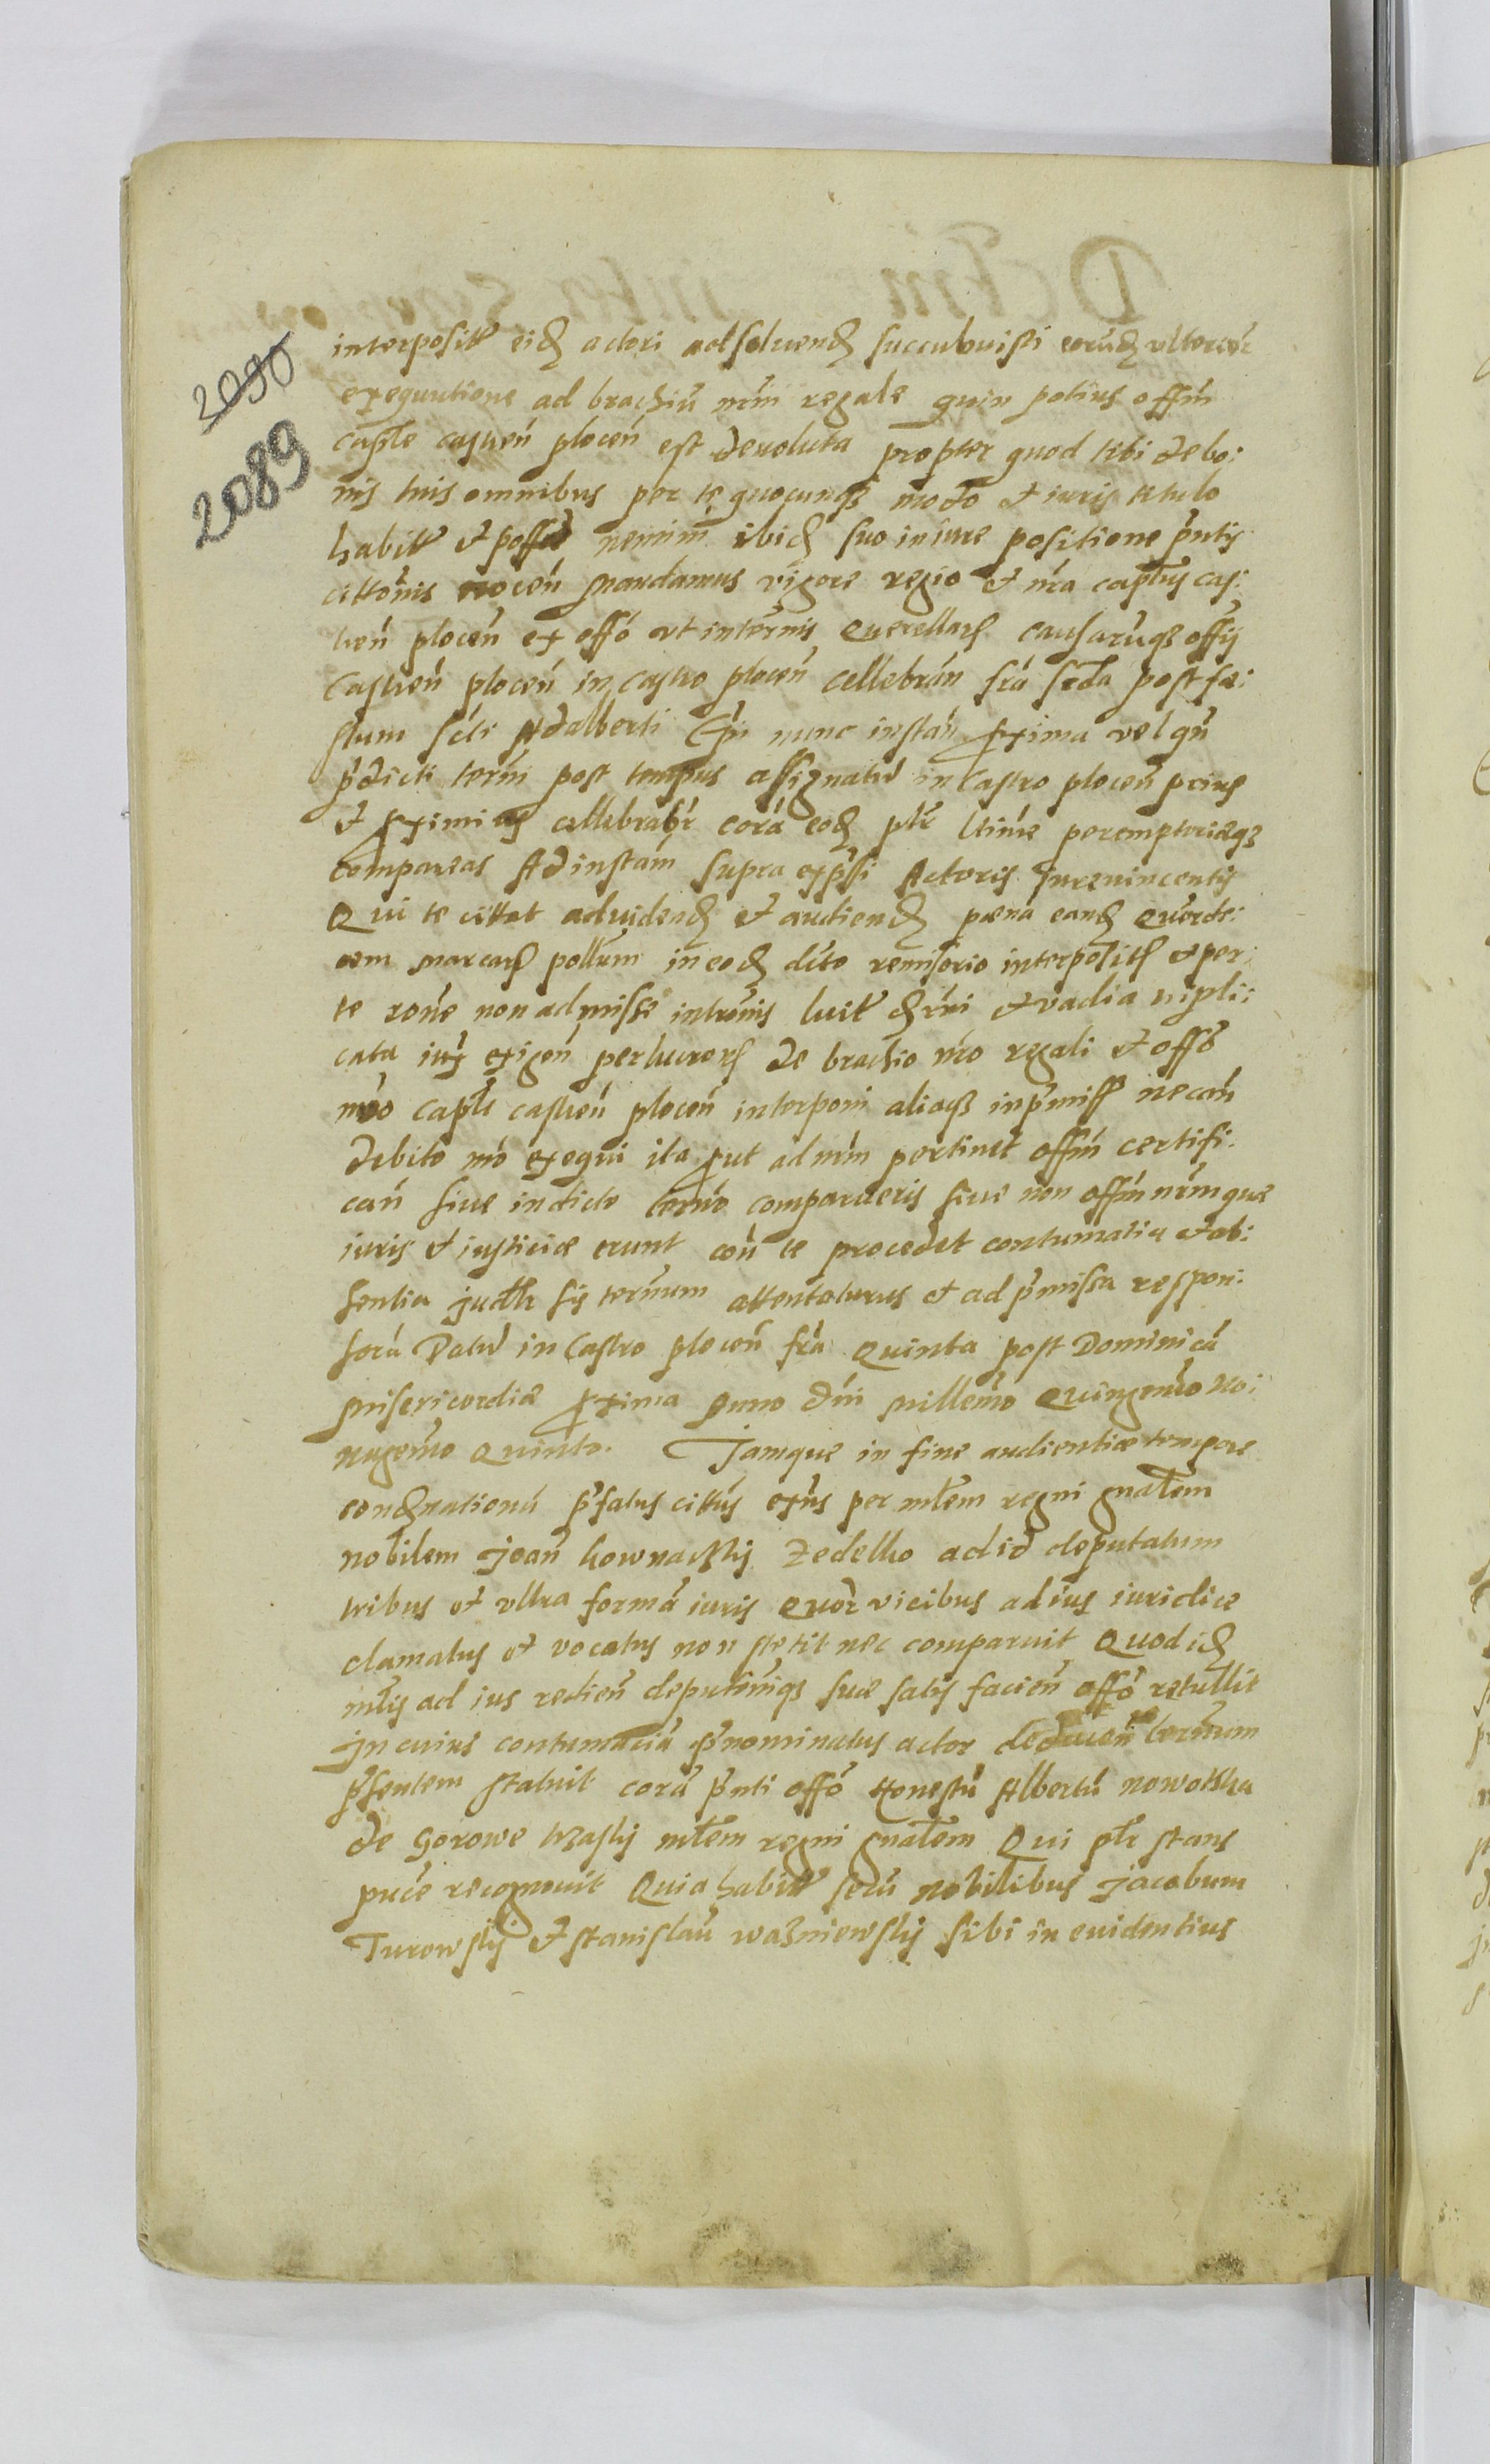 2090
2089
interposit eid actori adsoluend succubuisti eorund vlterior
exequutione ad brachiũ nrm̃ regale quin potius offm̃
captle castren̄ plocen̄ est deuoluta propter quod tibi de bo:
nis tuis omnibus per te quocunqʒ modo et iuris titulo
habit et possess nemini ibid suo in iure positione pñtis
citto̅nis nocen̄ Mandamus vigore regio et nr̃a captlis cas:
tren̄ plocen̄ ex offõ vt in ter̃nis Querellarʒ causarũqʒ offĩj
Castren̄ plocen̄ in Castro plocen̄ cellebrãn fr̃a scd̃a post fæ:
stum sc̃ti Adalberti nunc instãn pxima vel qñ
p̃dicti term̃ post tempus assignatũ in Castro plocen̄ prius
et pximius cellebrabr̃ corã eod ptr̃ ltime peremptoriæqʒ
compareas Ad instam̃ supra exp̃ssi Actoris Jureuincentis
Qui te cittat ad vidend et audiend pæna eand Querde:
cem marcarʒ pollm̃ in eod dcto remisorio interposit et per
te rone non admisse intrõnis luit dr̃ni et vadia tripli:
cata iux exigen̄ per lucrorʒ de brachio nr̃o regali et offõ
nr̃o captli castren̄ plocen̄ interponi aliaqʒ in p̃miss necãn
debito mõ exequi ita put ad nrm̃ pertinet offm̃ certifi:
cãn siue in dicto termo comparueris siue non offm̃ nrm̃ quæ
iuris et iusticiæ erunt con̄ te procedet contumatia et ab:
sentia judtr sis terminum attentaturus et ad p̃missa respon:
sorã Datũ in Castro plocen̄ fr̃a Quinta post Dominicã
Misericordiæ pxima Anno dñi Millemo Quingenmo no:
nagemo Quinto. Jamque in fine audientiæ tempore
condnationũ p̃fatus cittus exñs per mtlem regni gnalem
nobilem Joan̄ kownaczkij Zedelko ad id deputatum
tribus et vltra formã iuris Quor̃ vicibus ad ius iuridice
clamatus et vocatus non stetit nec comparuit Quod id
mtlis ad ius redien̄ deputõniqʒ suæ satis facien̄ offõ retullit
Jn cuius contumaciã p̃nominatus actor deducen̄ terminum
p̃sentem statuit corã p̃nti offõ Honestũ Albertũ nowotka
de Gorowe trzaski mtlem regni gnalem Qui ptr stans
puce recognouit Quia habit secũ nobilibus Jacobum
Turowskij et Stanislaũ wazniewskij sibi in euidentius